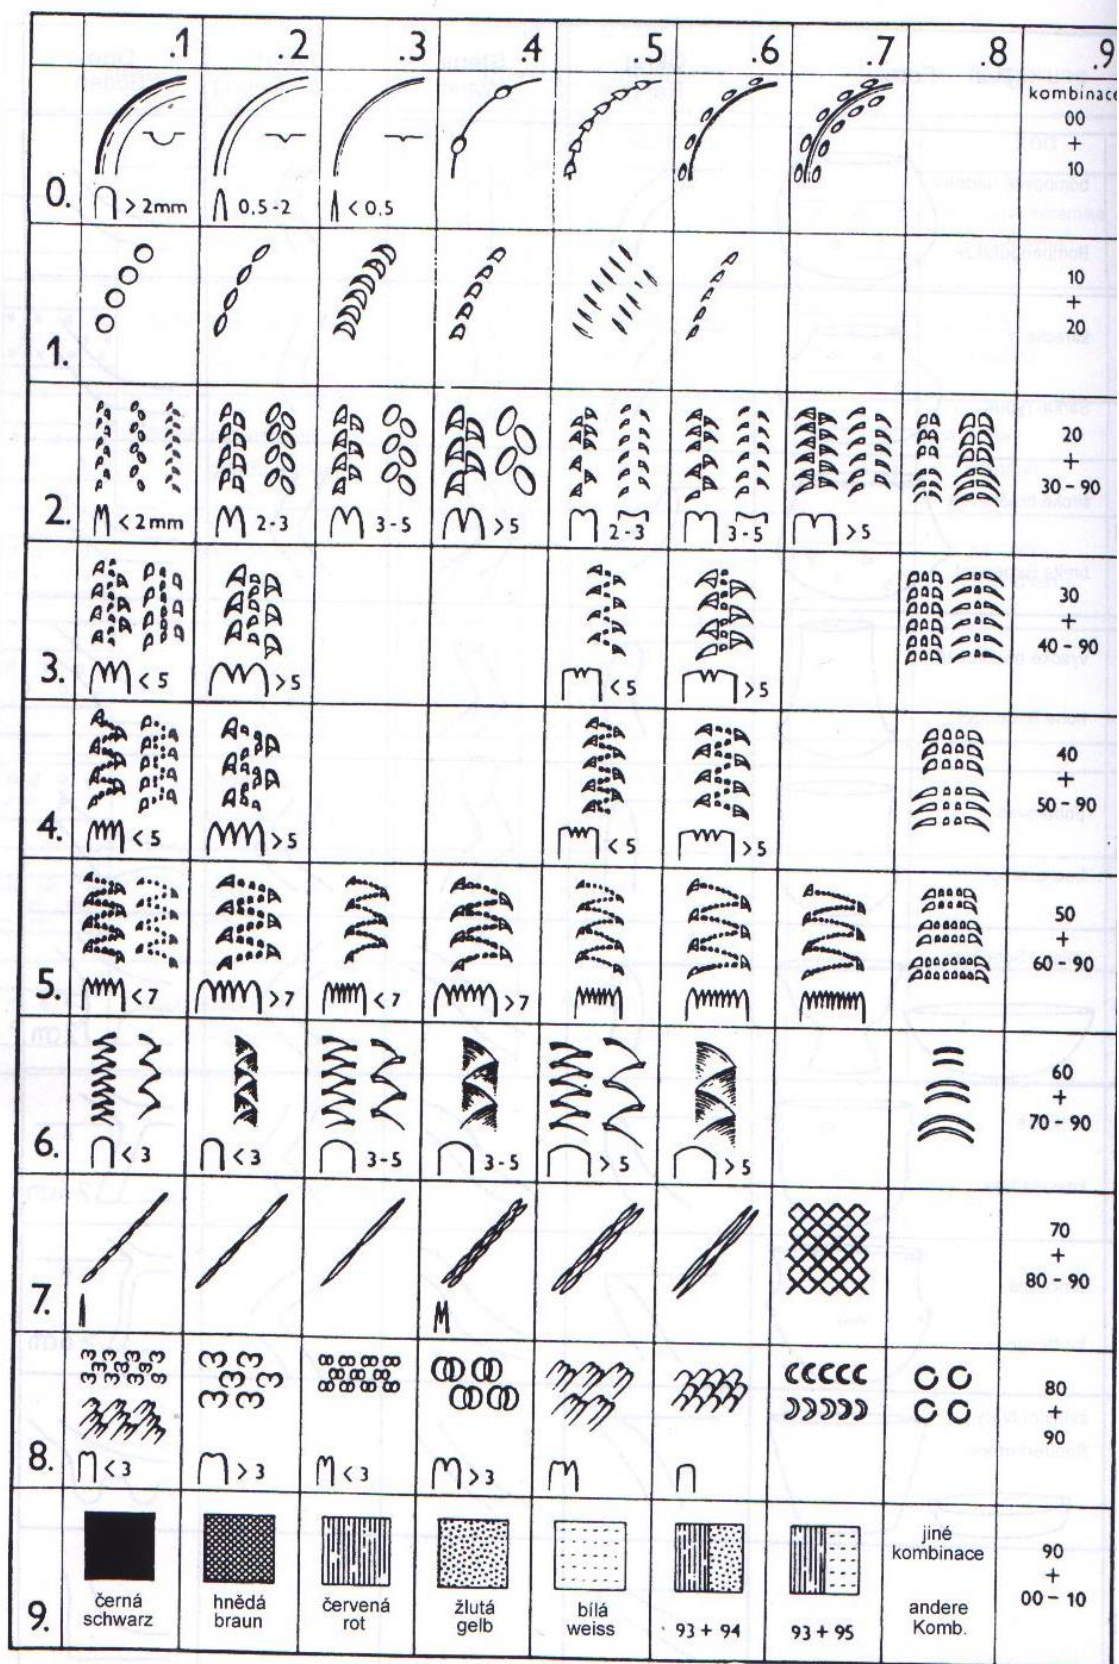 .1 .2 .3 .4 .5 .6 .7 .8 .9
kombinace
00
+
10
0. > 2mm 0.5-2 < 0.5
10
+
20
1.
20
+
30-90
2. < 2mm 2-3 3-5 > 5 2-3 3-5 > 5
30
+
40-90
3. < 5 > 5 < 5 > 5
40
+
50-90
4. < 5 > 5 < 5 > 5
50
+
60-90
5. < 7 > 7 < 7 > 7
60
+
70-90
6. < 3 < 3 3-5 3-5 > 5 > 5
70
+
80-90
7.
80
+
90
8. < 3 > 3 < 3 > 3
9.
černá
schwarz
hnědá
braun
červená
rot
žlutá
gelb
bílá
weiss
93 + 94
93 + 95
jiné
kombinace
andere
Komb.
90
+
00-10